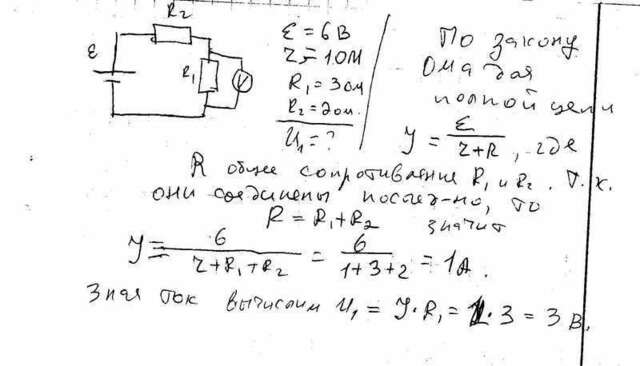 R₂
ε
R₁
V
ε = 6 В
r = 1 Ом
R₁ = 3 ом
R₂ = 2 ом.
U₁ = ?
По закону
Ома для
полной цепи
У = ε / (r + R), где
R общее сопротивление R₁ и R₂. Т.к.
они соединены послед-но, то
R = R₁ + R₂ значит
У = 6 / (r + R₁ + R₂) = 6 / (1 + 3 + 2) = 1 А.
Зная ток вычислим U₁ = У · R₁ = 1 · 3 = 3 В.